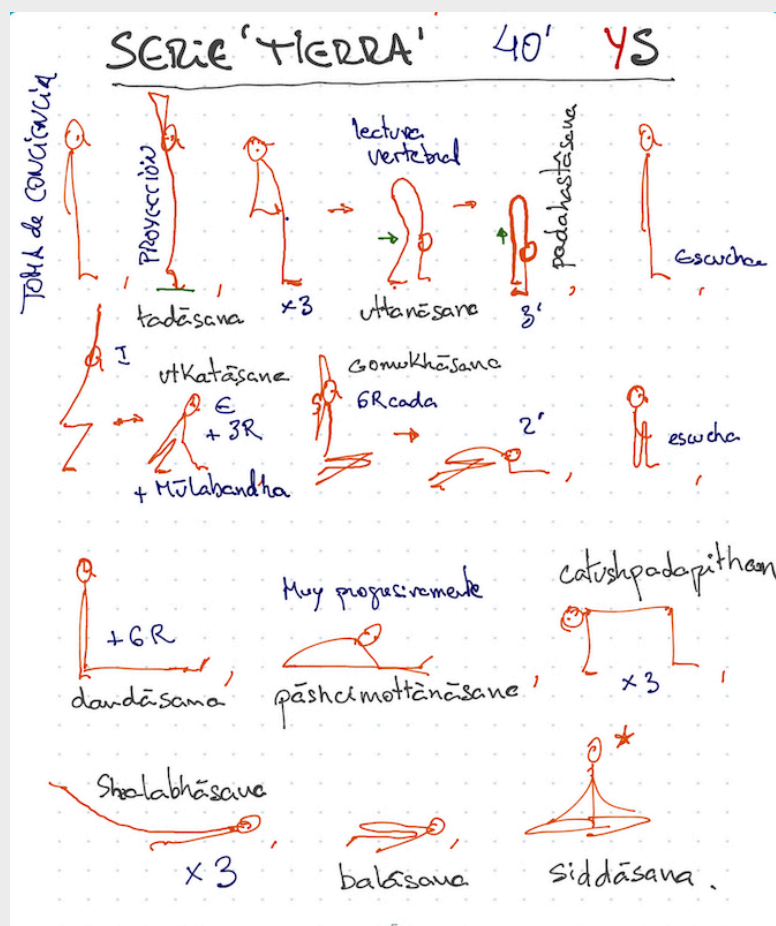 SERIE 'TIERRA' 40' YS
TOMA de CONCIENCIA
PROYECCIÓN
tadāsana
x3
lectura
vertebral
uttanāsana
3'
padahastāsana
Escucha
I
utkatāsana
E
+ 3R
+ Mūlabandha
Gomukhāsana
6R cada
2'
escucha
+6R
dandāsana
Muy progresivamente
pāshcimottānāsana
catushpadapitham
x3
Shalabhāsana
x3
balāsana
siddāsana.